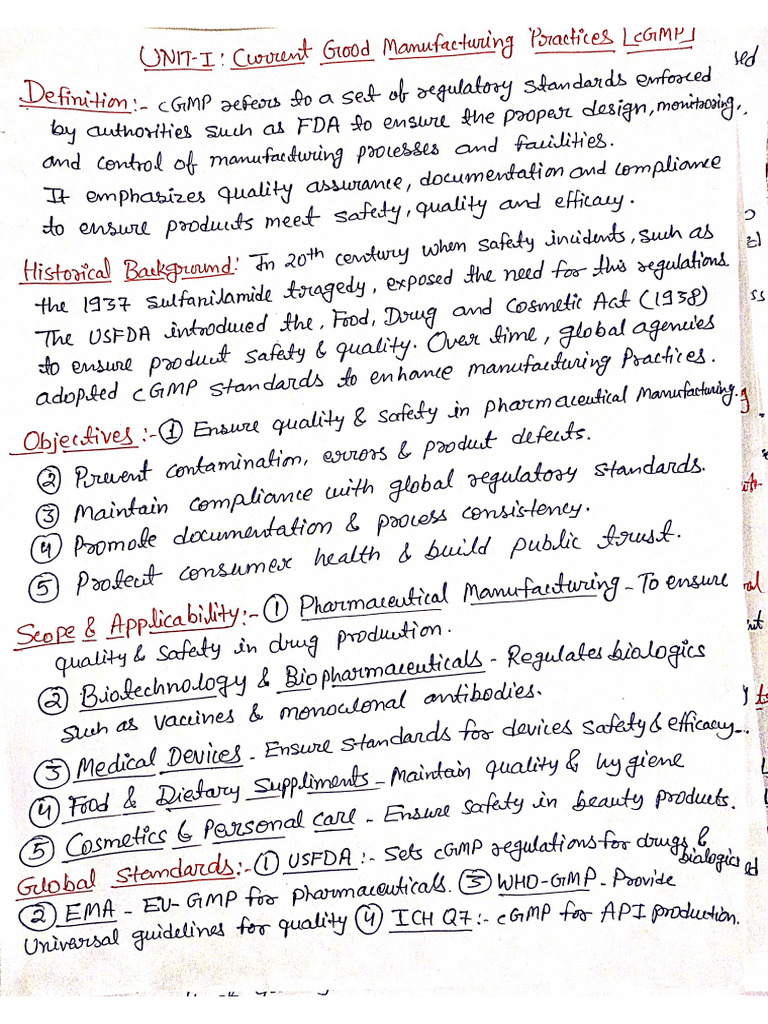 UNIT-I: Current Good Manufacturing Practices [cGMP]
Definition:- cGMP refers to a set of regulatory standards enforced
by authorities such as FDA to ensure the proper design, monitoring,
and control of manufacturing processes and facilities.
It emphasizes quality assurance, documentation and compliance
to ensure products meet safety, quality and efficacy.
Historical Background: In 20th century when safety incidents, such as
the 1937 sulfanilamide tragedy, exposed the need for this regulations
The USFDA introduced the, Food, Drug and Cosmetic Act (1938)
to ensure product safety & quality. Over time, global agencies
adopted cGMP standards to enhance manufacturing Practices.
Objectives:- ① Ensure quality & safety in pharmaceutical Manufacturing.
② Prevent contamination, errors & product defects.
③ Maintain compliance with global regulatory standards.
④ Promote documentation & process consistency.
⑤ Protect consumer health & build public trust.
Scope & Applicability:- ① Pharmaceutical Manufacturing - To ensure
quality & safety in drug production.
② Biotechnology & Biopharmaceuticals - Regulates biologics
such as vaccines & monoclonal antibodies.
③ Medical Devices - Ensure standards for devices safety & efficacy.
④ Food & Dietary Suppliments - Maintain quality & hygiene
⑤ Cosmetics & Personal care - Ensure safety in beauty products.
Global Standards:- ① USFDA:- Sets cGMP regulations for drugs & biologics
② EMA - EU-GMP for pharmaceuticals. ③ WHO-GMP - Provide
Universal guidelines for quality ④ ICH Q7:- cGMP for API production.